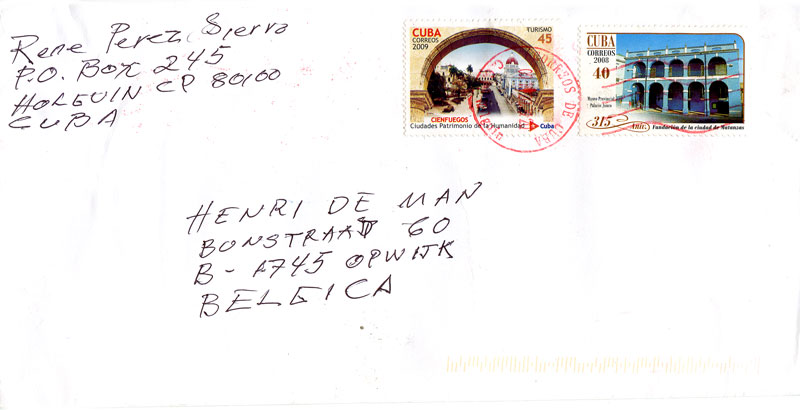 Rene Perez Sierra
P.O. BOX 245
HOLGUIN CP 80100
CUBA
CUBA
CORREOS
2009
TURISMO
45
CIENFUEGOS
Ciudades Patrimonio de la Humanidad
Cuba
CORREOS DE CUBA
CUBA
CORREOS
2008
40
Museo Provincial
Palacio Junco
315 Aniv. Fundación de la ciudad de Matanzas
HENRI DE MAN
60
B-1745 OPWIJK
BELGICA